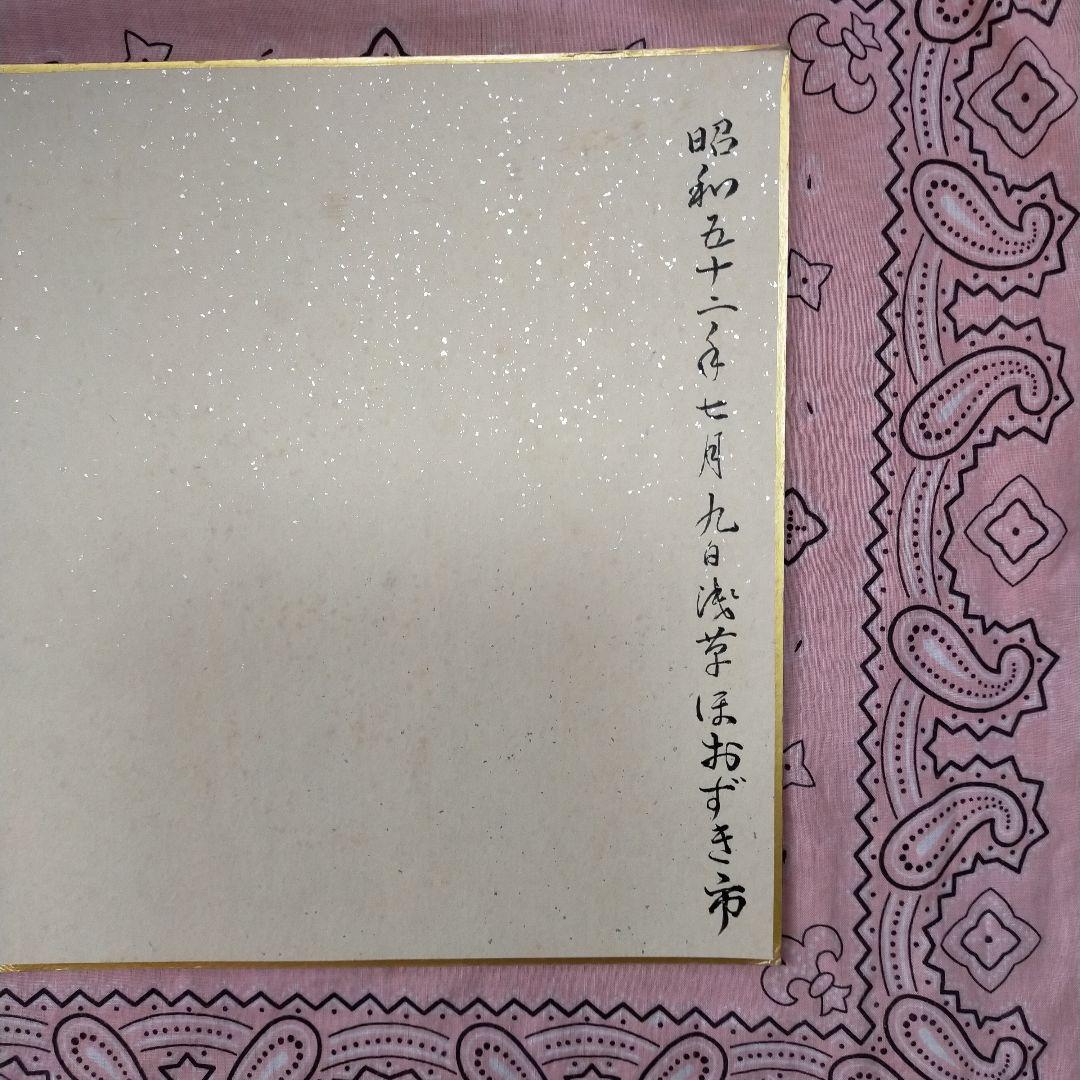 昭和五十二年七月九日浅草ほおずき市